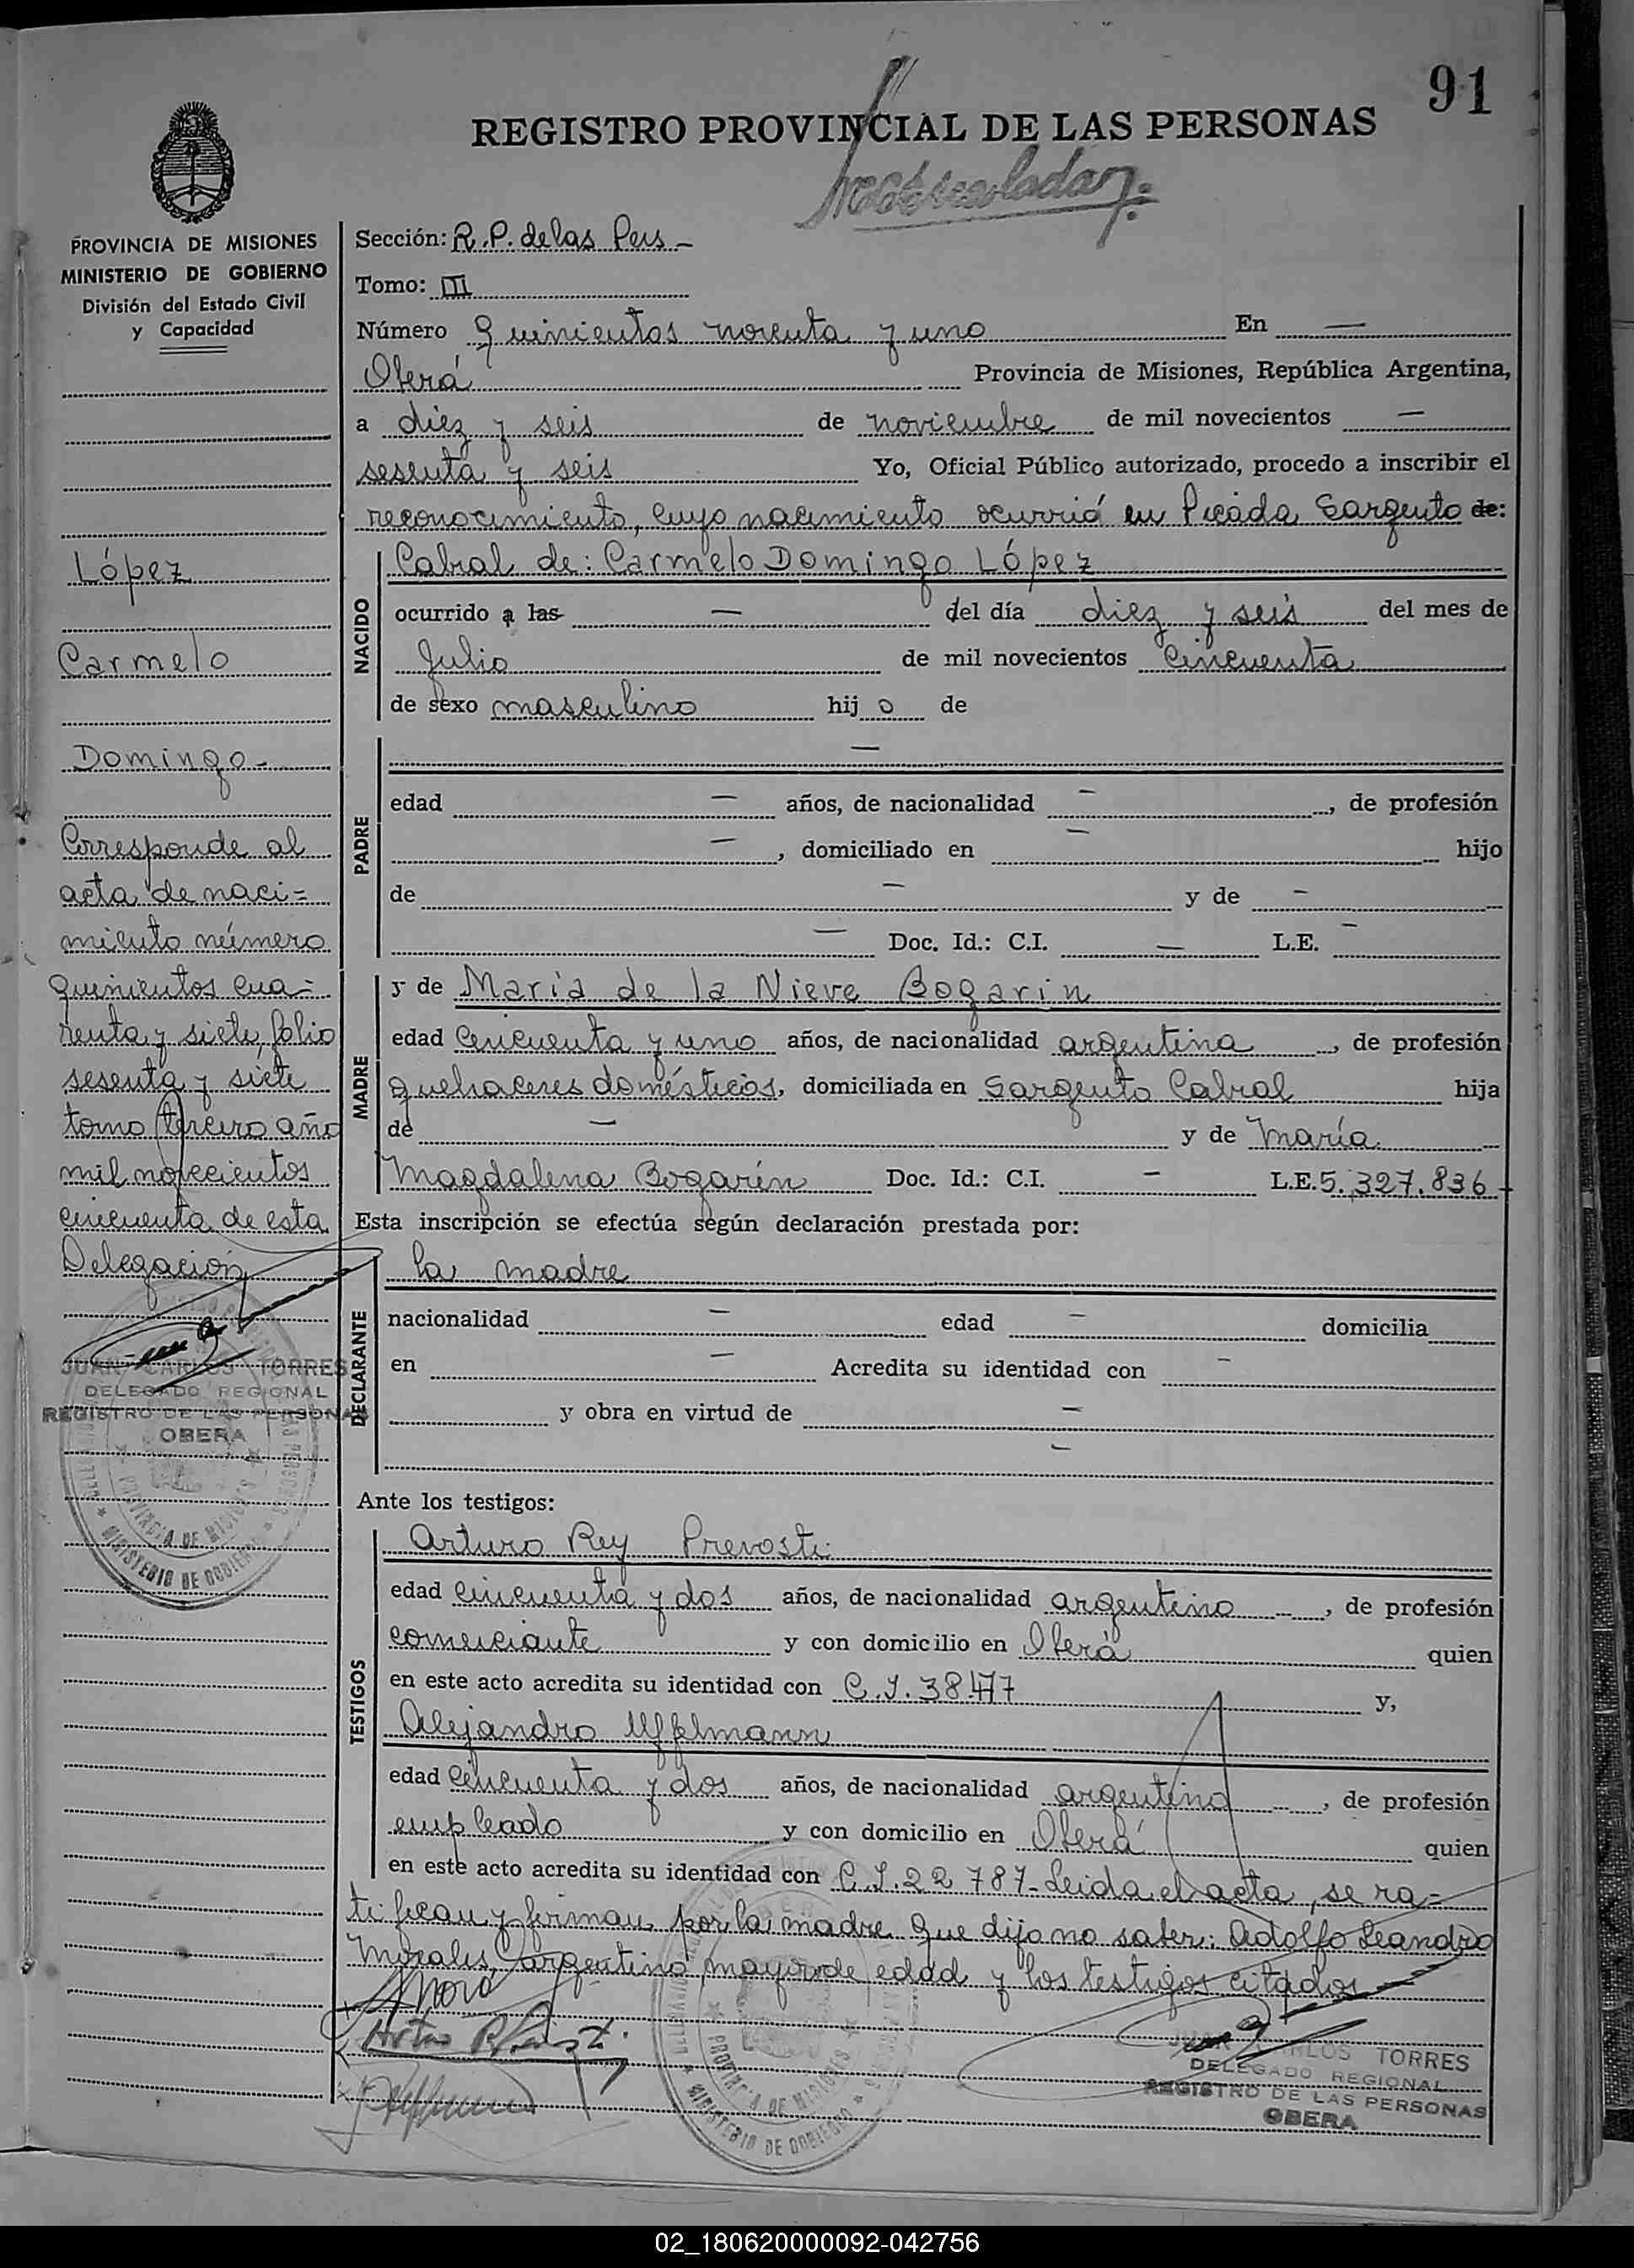 91
REGISTRO PROVINCIAL DE LAS PERSONAS
PROVINCIA DE MISIONES
MINISTERIO DE GOBIERNO
División del Estado Civil
y Capacidad
López
Carmelo
Domingo -
Corresponde al
acta de naci=
miento número
quinientos cua=
renta y siete, folio
sesenta y siete
tomo tercero año
mil novecientos
cincuenta de esta
Delegación
JUAN CARLOS TORRES
DELEGADO REGIONAL
REGISTRO DE LAS PERSONAS
OBERA
PROVINCIA DE MISIONES
MINISTERIO DE GOBIERNO
Sección: R.P. de las Pers -
Tomo: III
Número Quinientos noventa y uno En —
Oberá Provincia de Misiones, República Argentina,
a diez y seis de noviembre de mil novecientos —
sesenta y seis Yo, Oficial Público autorizado, procedo a inscribir el
reconocimiento, cuyo nacimiento ocurrió en Picada Sargento de:
NACIDO
Cabral de: Carmelo Domingo López
ocurrido a las — del día diez y seis del mes de
Julio de mil novecientos cincuenta
de sexo masculino hij o de
PADRE
—
edad — años, de nacionalidad — , de profesión
— , domiciliado en — hijo
de — y de —
— Doc. Id.: C.I. — L.E. —
MADRE
y de María de la Nieve Bogarin
edad cincuenta y uno años, de nacionalidad argentina , de profesión
quehaceres domésticos, domiciliada en Sargento Cabral hija
de — y de María
Magdalena Bogarín Doc. Id.: C.I. — L.E. 5.327.836 -
Esta inscripción se efectúa según declaración prestada por:
DECLARANTE
la madre
nacionalidad — edad — domicilia
en — Acredita su identidad con —
y obra en virtud de —
—
Ante los testigos:
TESTIGOS
Arturo Rey Prevosti
edad cincuenta y dos años, de nacionalidad argentino , de profesión
comerciante y con domicilio en Oberá quien
en este acto acredita su identidad con C.I. 38.477 y,
Alejandro Uffelmann
edad cincuenta y dos años, de nacionalidad argentino , de profesión
empleado y con domicilio en Oberá quien
en este acto acredita su identidad con C.I. 22 787 - Leida el acta, se ra=
tifican y firman por la madre que dijo no saber: Adolfo Leandro
Morales, argentino, mayor de edad y los testigos citados
PROVINCIA DE MISIONES
MINISTERIO DE GOBIERNO
CARLOS TORRES
DELEGADO REGIONAL
REGISTRO DE LAS PERSONAS
OBERA
02_180620000092-042756